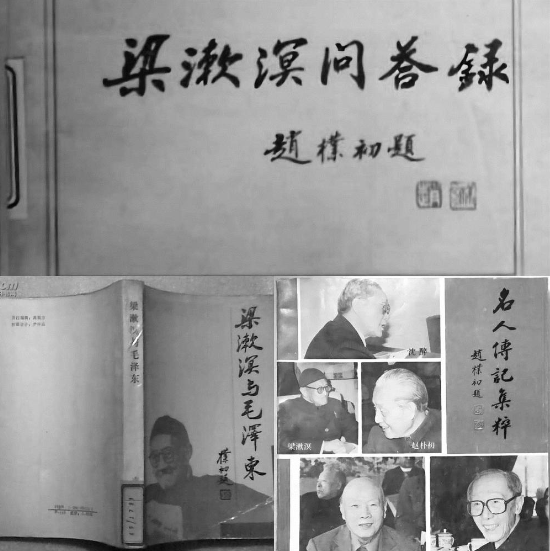 梁漱溟问答録
趙樸初題
梁漱溟与毛泽东
梁漱溟与毛澤東
樸初題
名人傳記集粹
趙樸初題
沈醉
梁漱溟
赵朴初